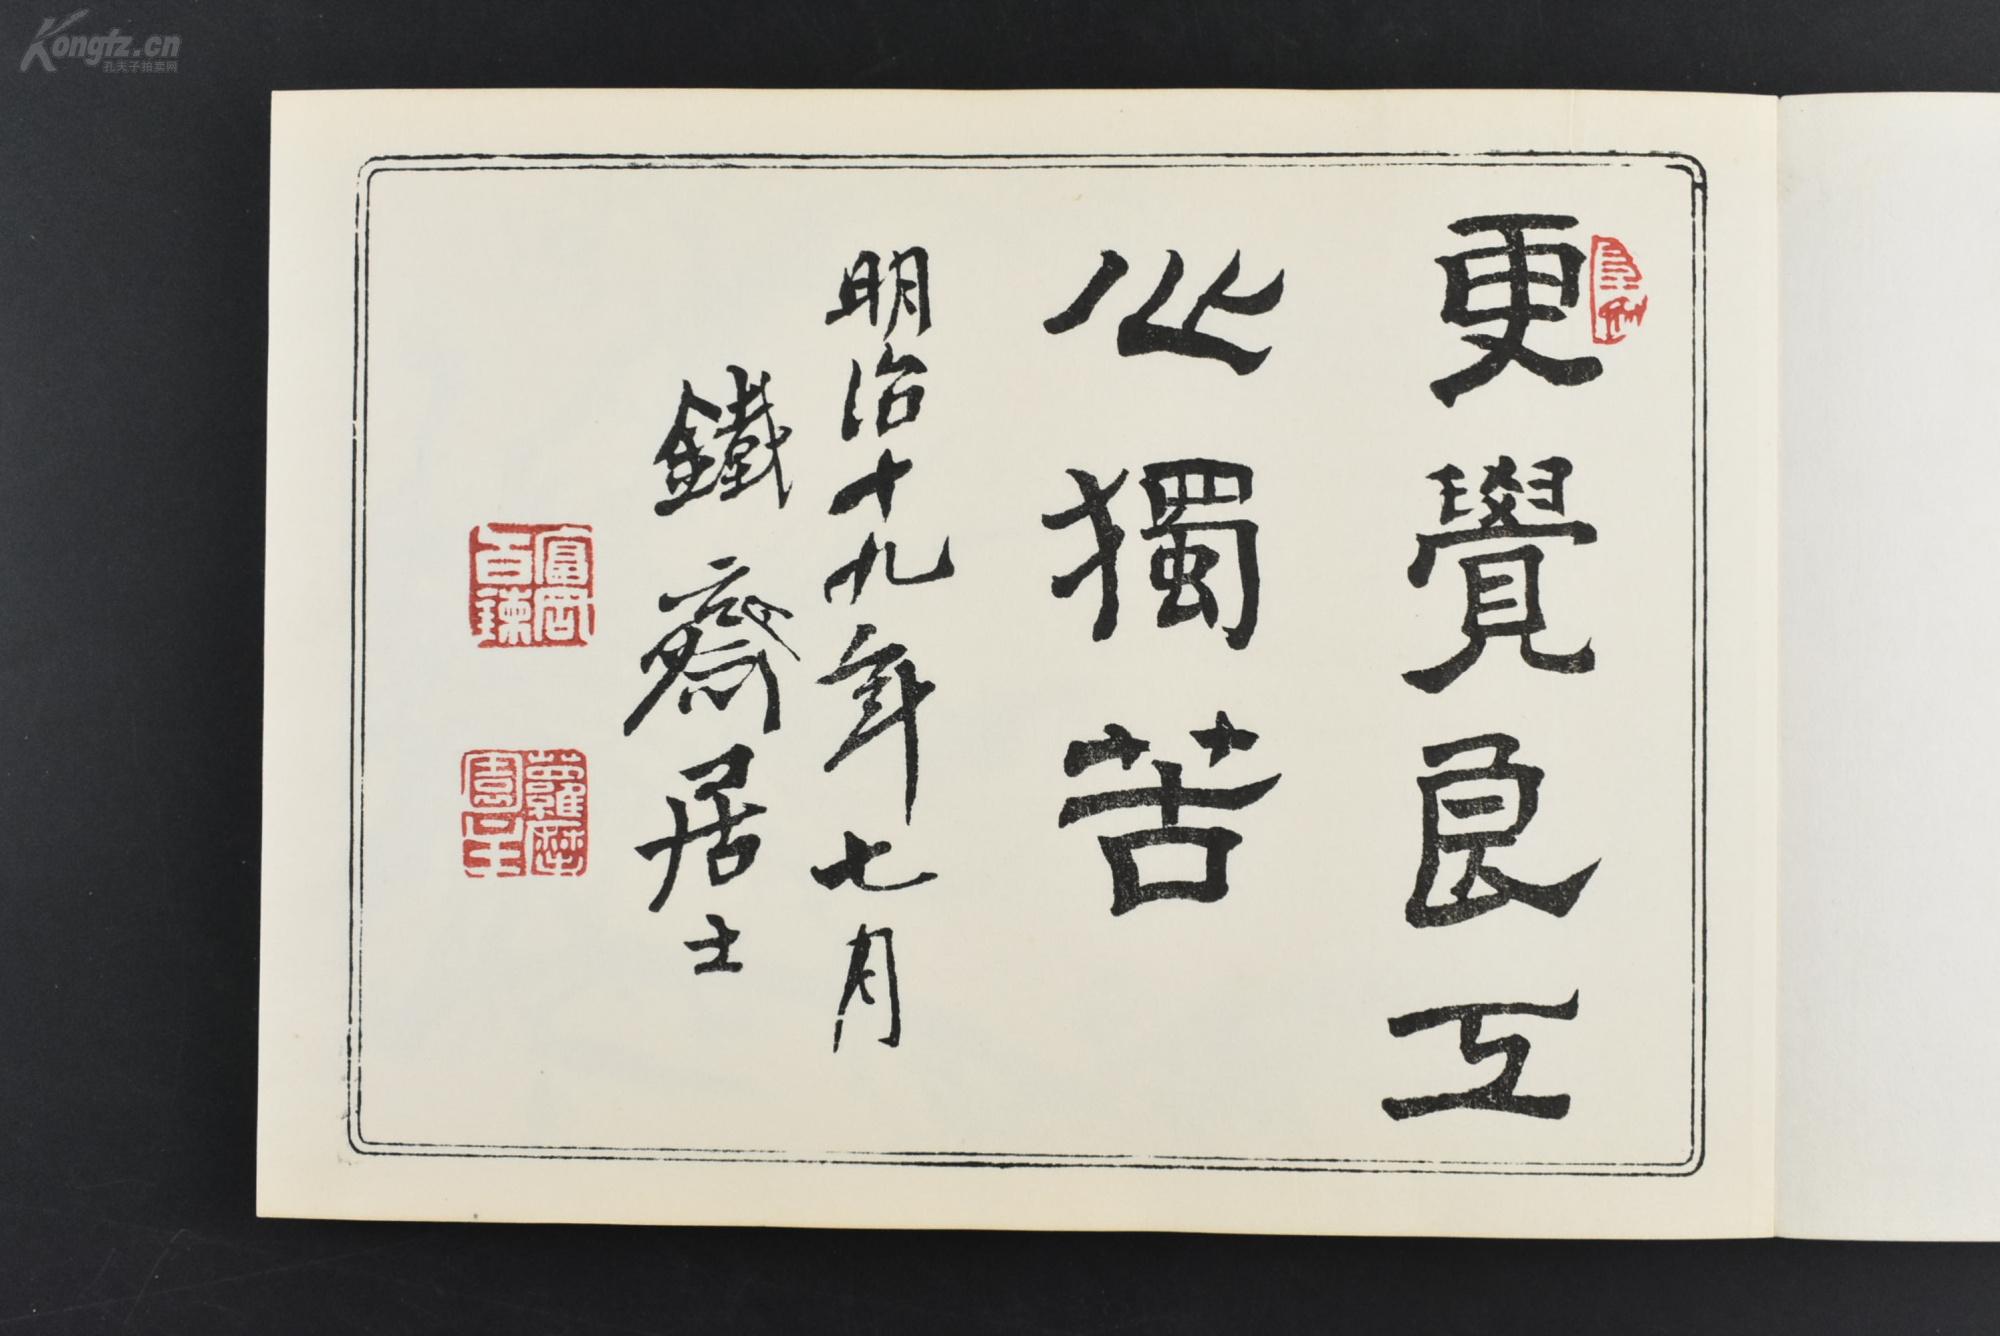 更覺良工
心獨苦
明治十九年七月
鐵齋居士
富岡
百鍊
Kongfz.cn
孔夫子拍卖网